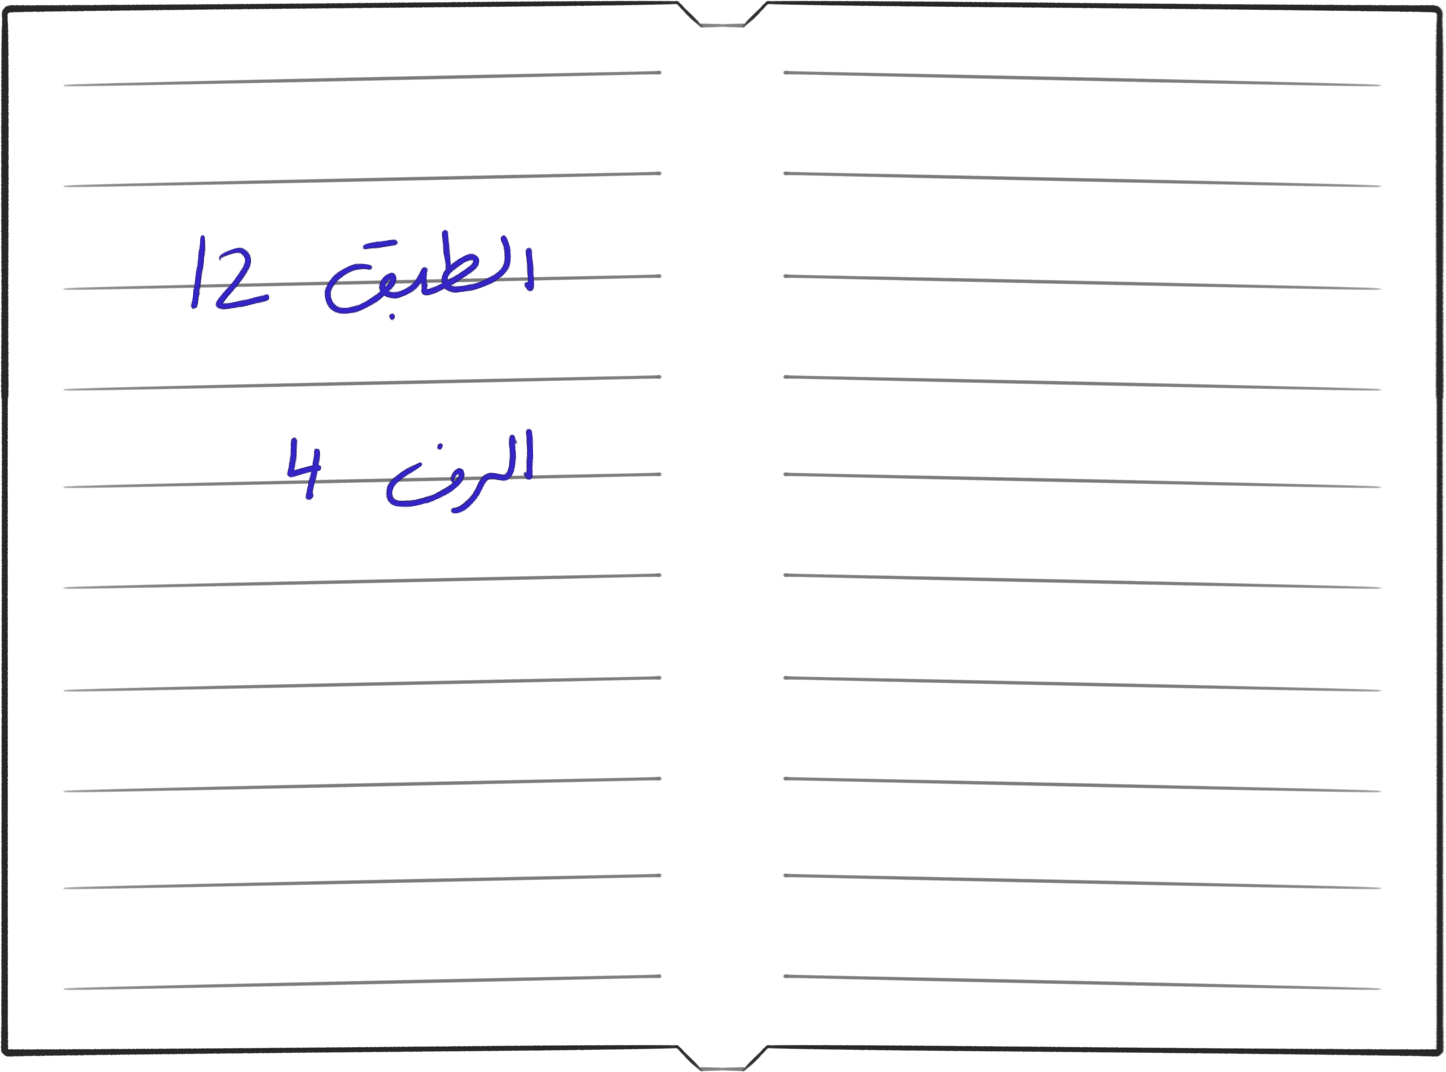 الطبق 12
الرف 4